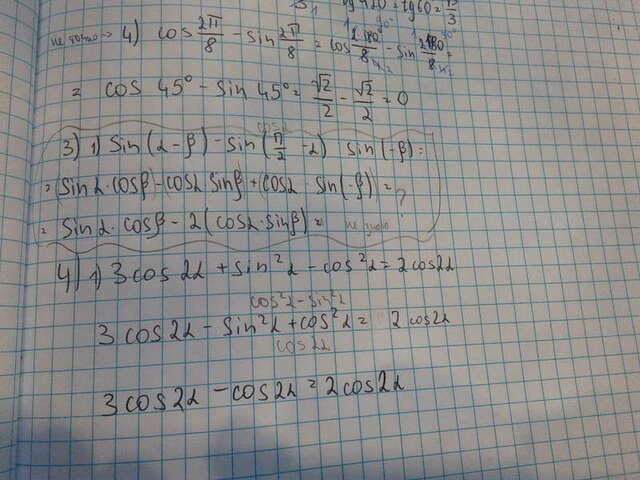 tg 420 = tg 60 = π/3
не точно → 4) cos 2π/8 - sin 2π/8 = cos 2·180°/8 - sin 2·180°/8 =
= cos 45° - sin 45° = √2/2 - √2/2 = 0
3) 1) Sin(α-β) - sin(π/2 - α) sin(-β) =
= (Sin α·cosβ) - cosα sinβ + (cosα - sin(-β)) = ?
= Sin α·cosβ - 2(cosα·sinβ) = не знаю
4) 1) 3cos2α + sin²α - cos²α = 2cos2α
cos²α - sin²α
3cos2α - sin²α + cos²α = 2cos2α
cos2α
3cos2α - cos2α = 2cos2α